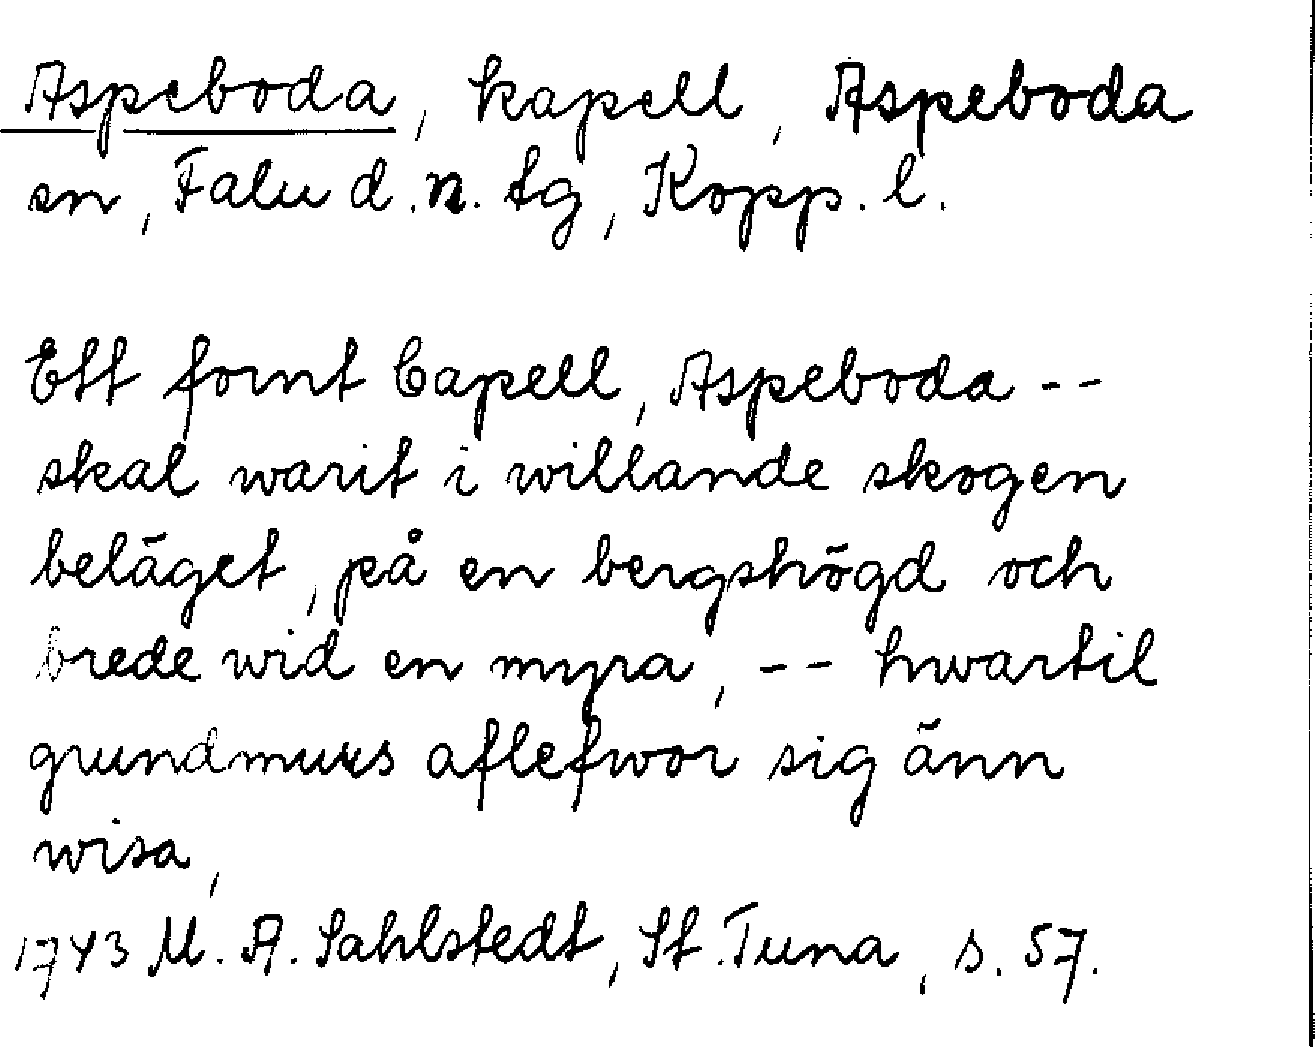 Aspeboda, kapell, Aspeboda
sn, Falu d.n. tg, Kopp. l.
Ett fornt Capell, Aspeboda --
skal warit i willande skogen
beläget, på en bergshögd och
brede wid en myra, -- hwartil
grundmurs aflefwor sig änn
wisa,
1743 M. A. Sahlstedt, St. Tuna, s. 57.